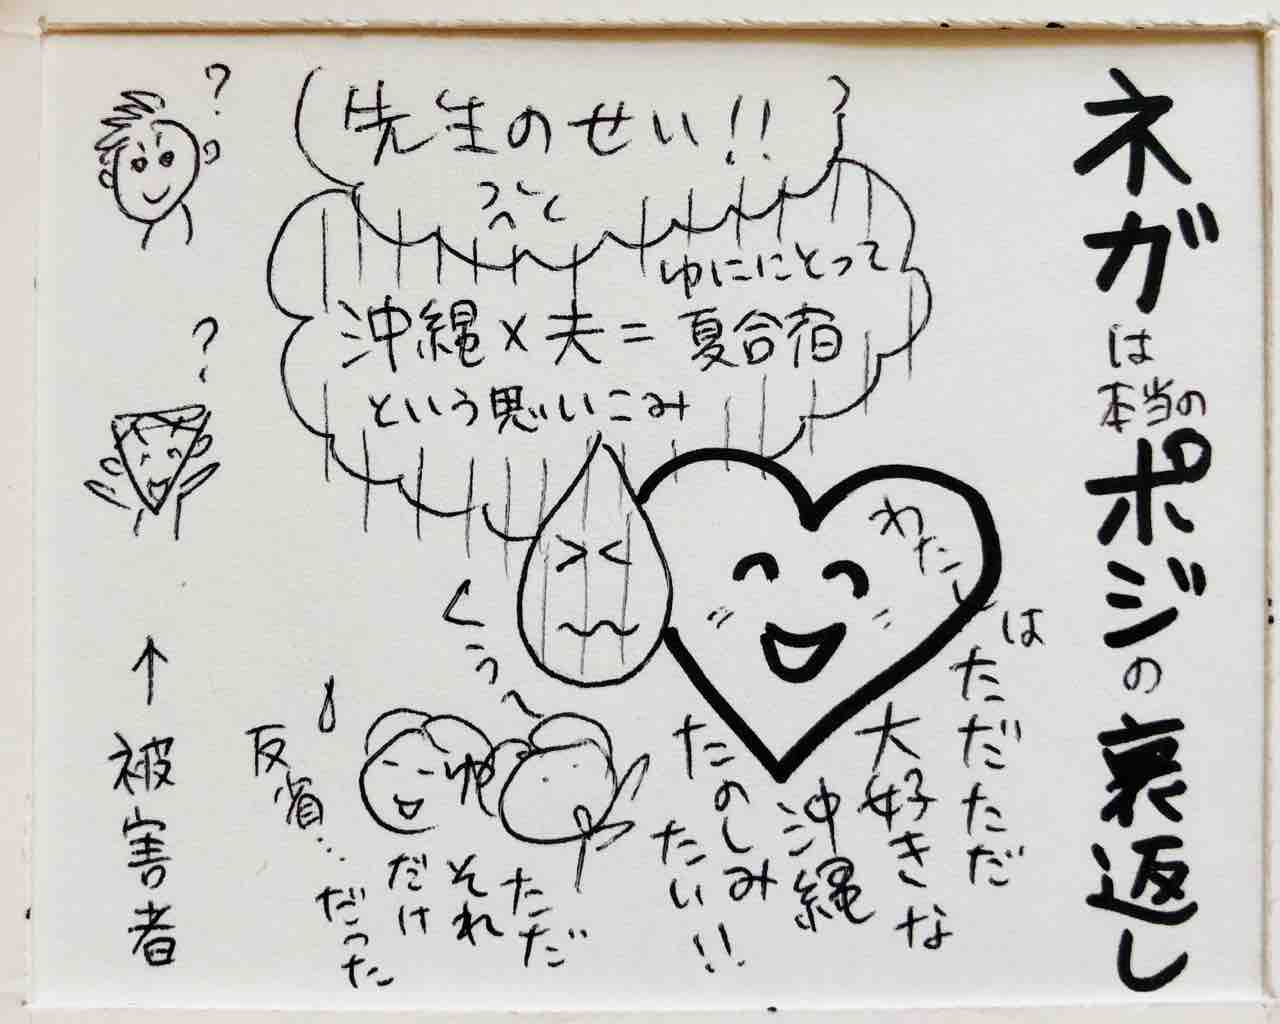 ネガは本当のポジの裏返し
先生のせい!!
ゆににとって
沖縄×夫=夏合宿
という思いこみ
わたしは
ただただ
大好きな
沖縄
たのしみ
たい!!
くぅ〜
ゆ
ただ
それ
だけ
だった
反省…
?
?
↑被害者